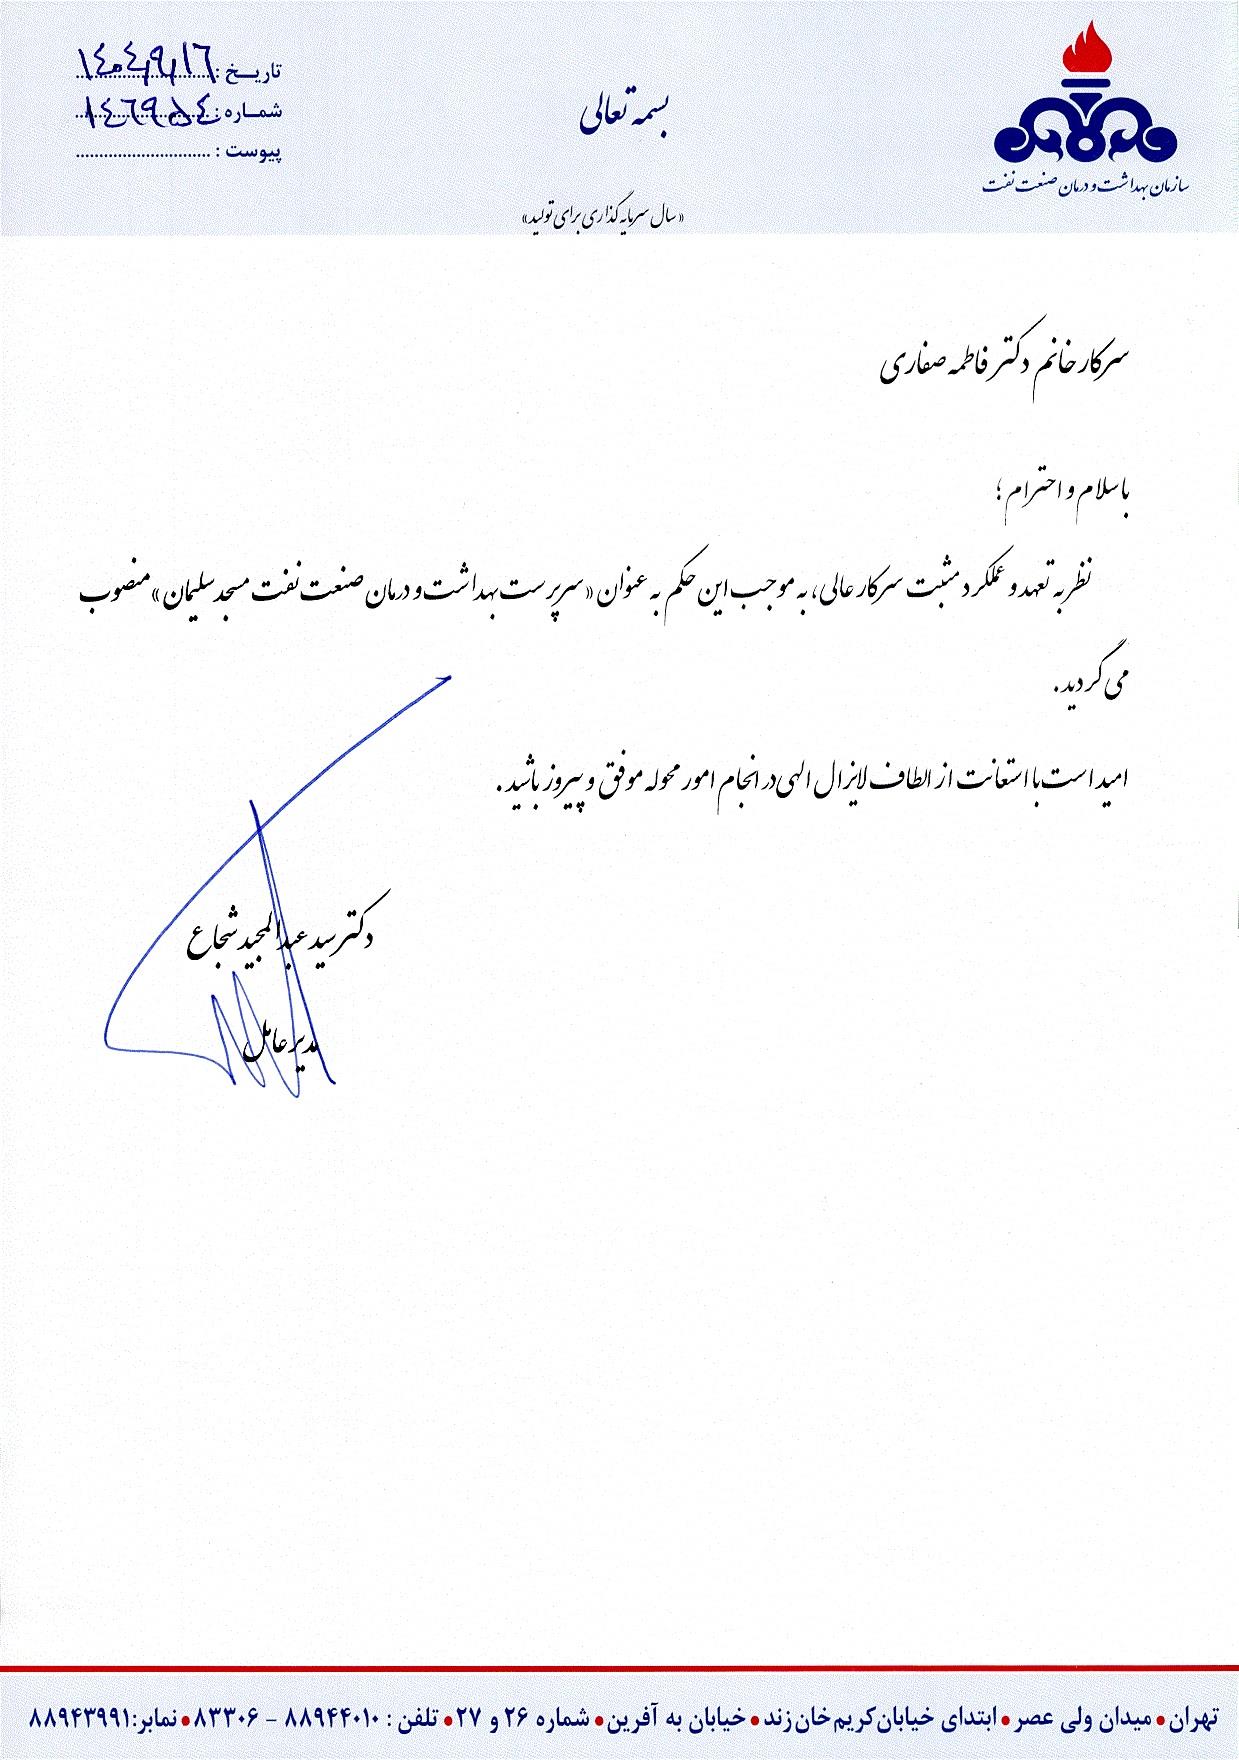 تاریخ : ۱۴۰۴/۹/۱۶
شماره : ۱۴۶۹۵۴
پیوست :
بسمه تعالی
سازمان بهداشت و درمان صنعت نفت
«سال سرمایه گذاری برای تولید»
سرکار خانم دکتر فاطمه صفاری
با سلام و احترام ؛
نظر به تعهد و عملکرد مثبت سرکار عالی، به موجب این حکم به عنوان «سرپرست بهداشت و درمان صنعت نفت مسجد سلیمان» منصوب
می گردید.
امید است با استعانت از الطاف لایزال الهی در انجام امور محوله موفق و پیروز باشید.
دکتر سید عبدالمجید شجاع
مدیرعامل
تهران • میدان ولی عصر • ابتدای خیابان کریم خان زند • خیابان به آفرین • شماره ۲۶ و ۲۷ • تلفن : ۸۸۹۴۴۰۱۰ - ۸۳۳۰۶ • نمابر: ۸۸۹۴۳۹۹۱